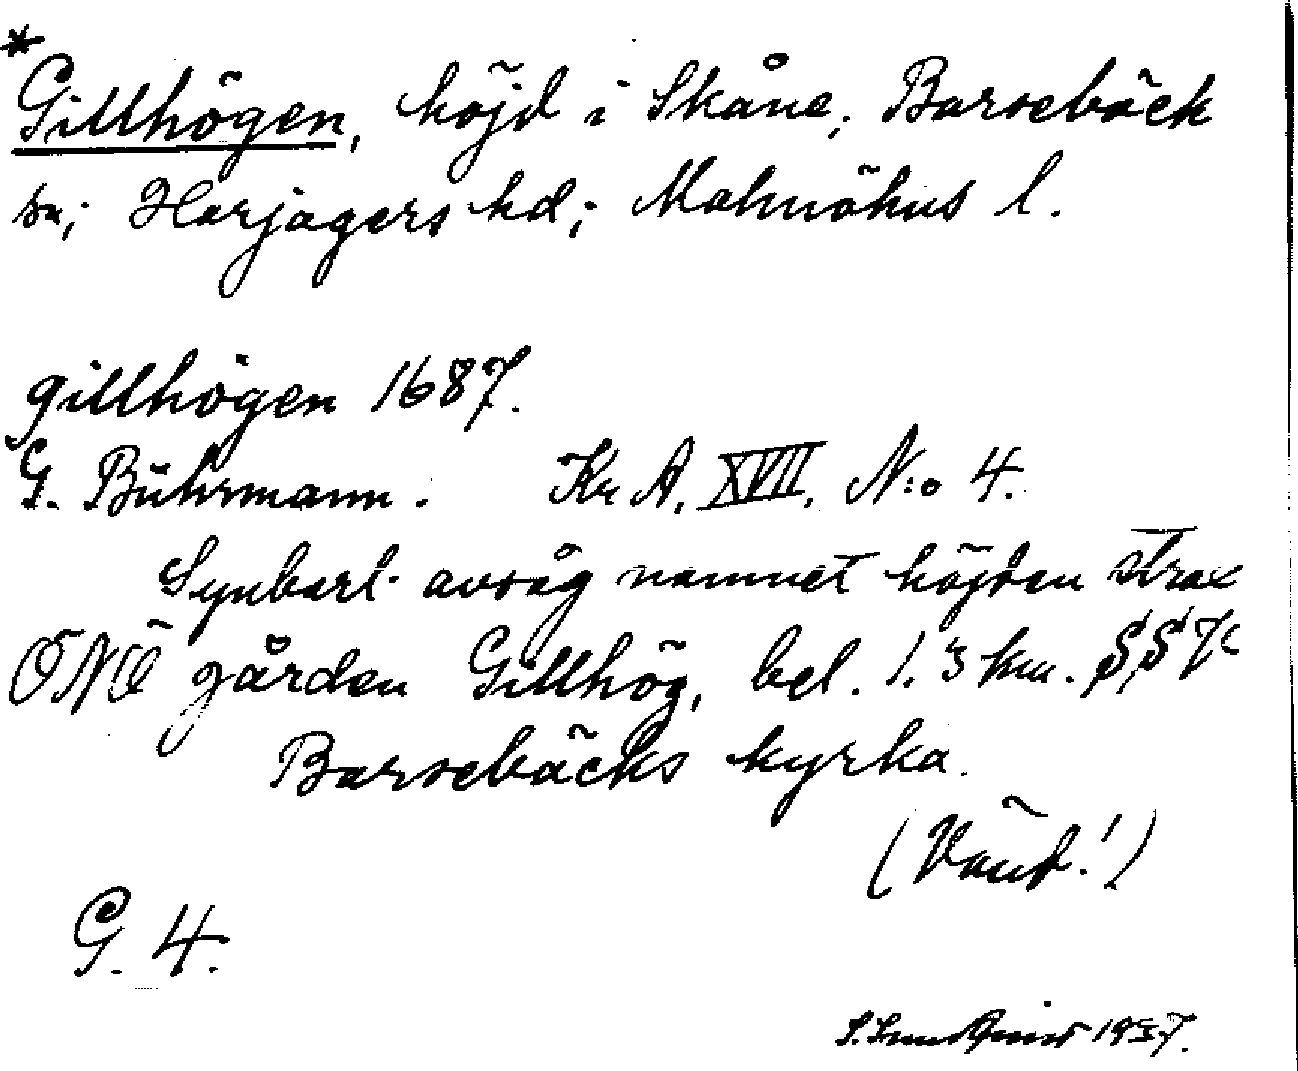 *
Gillhögen, höjd i Skåne; Barsebäck
sn; Harjagers hd; Malmöhus l.
gillhögen 1687.
G. Bührmann. Kr A. XVII. N:o 4.
Synbarl. avsåg namnet höjden strax
ÖNÖ gården Gillhög, bel. 1.3 km. SSV
Barsebäcks kyrka.
(Vänd!)
G. 4.
1937.